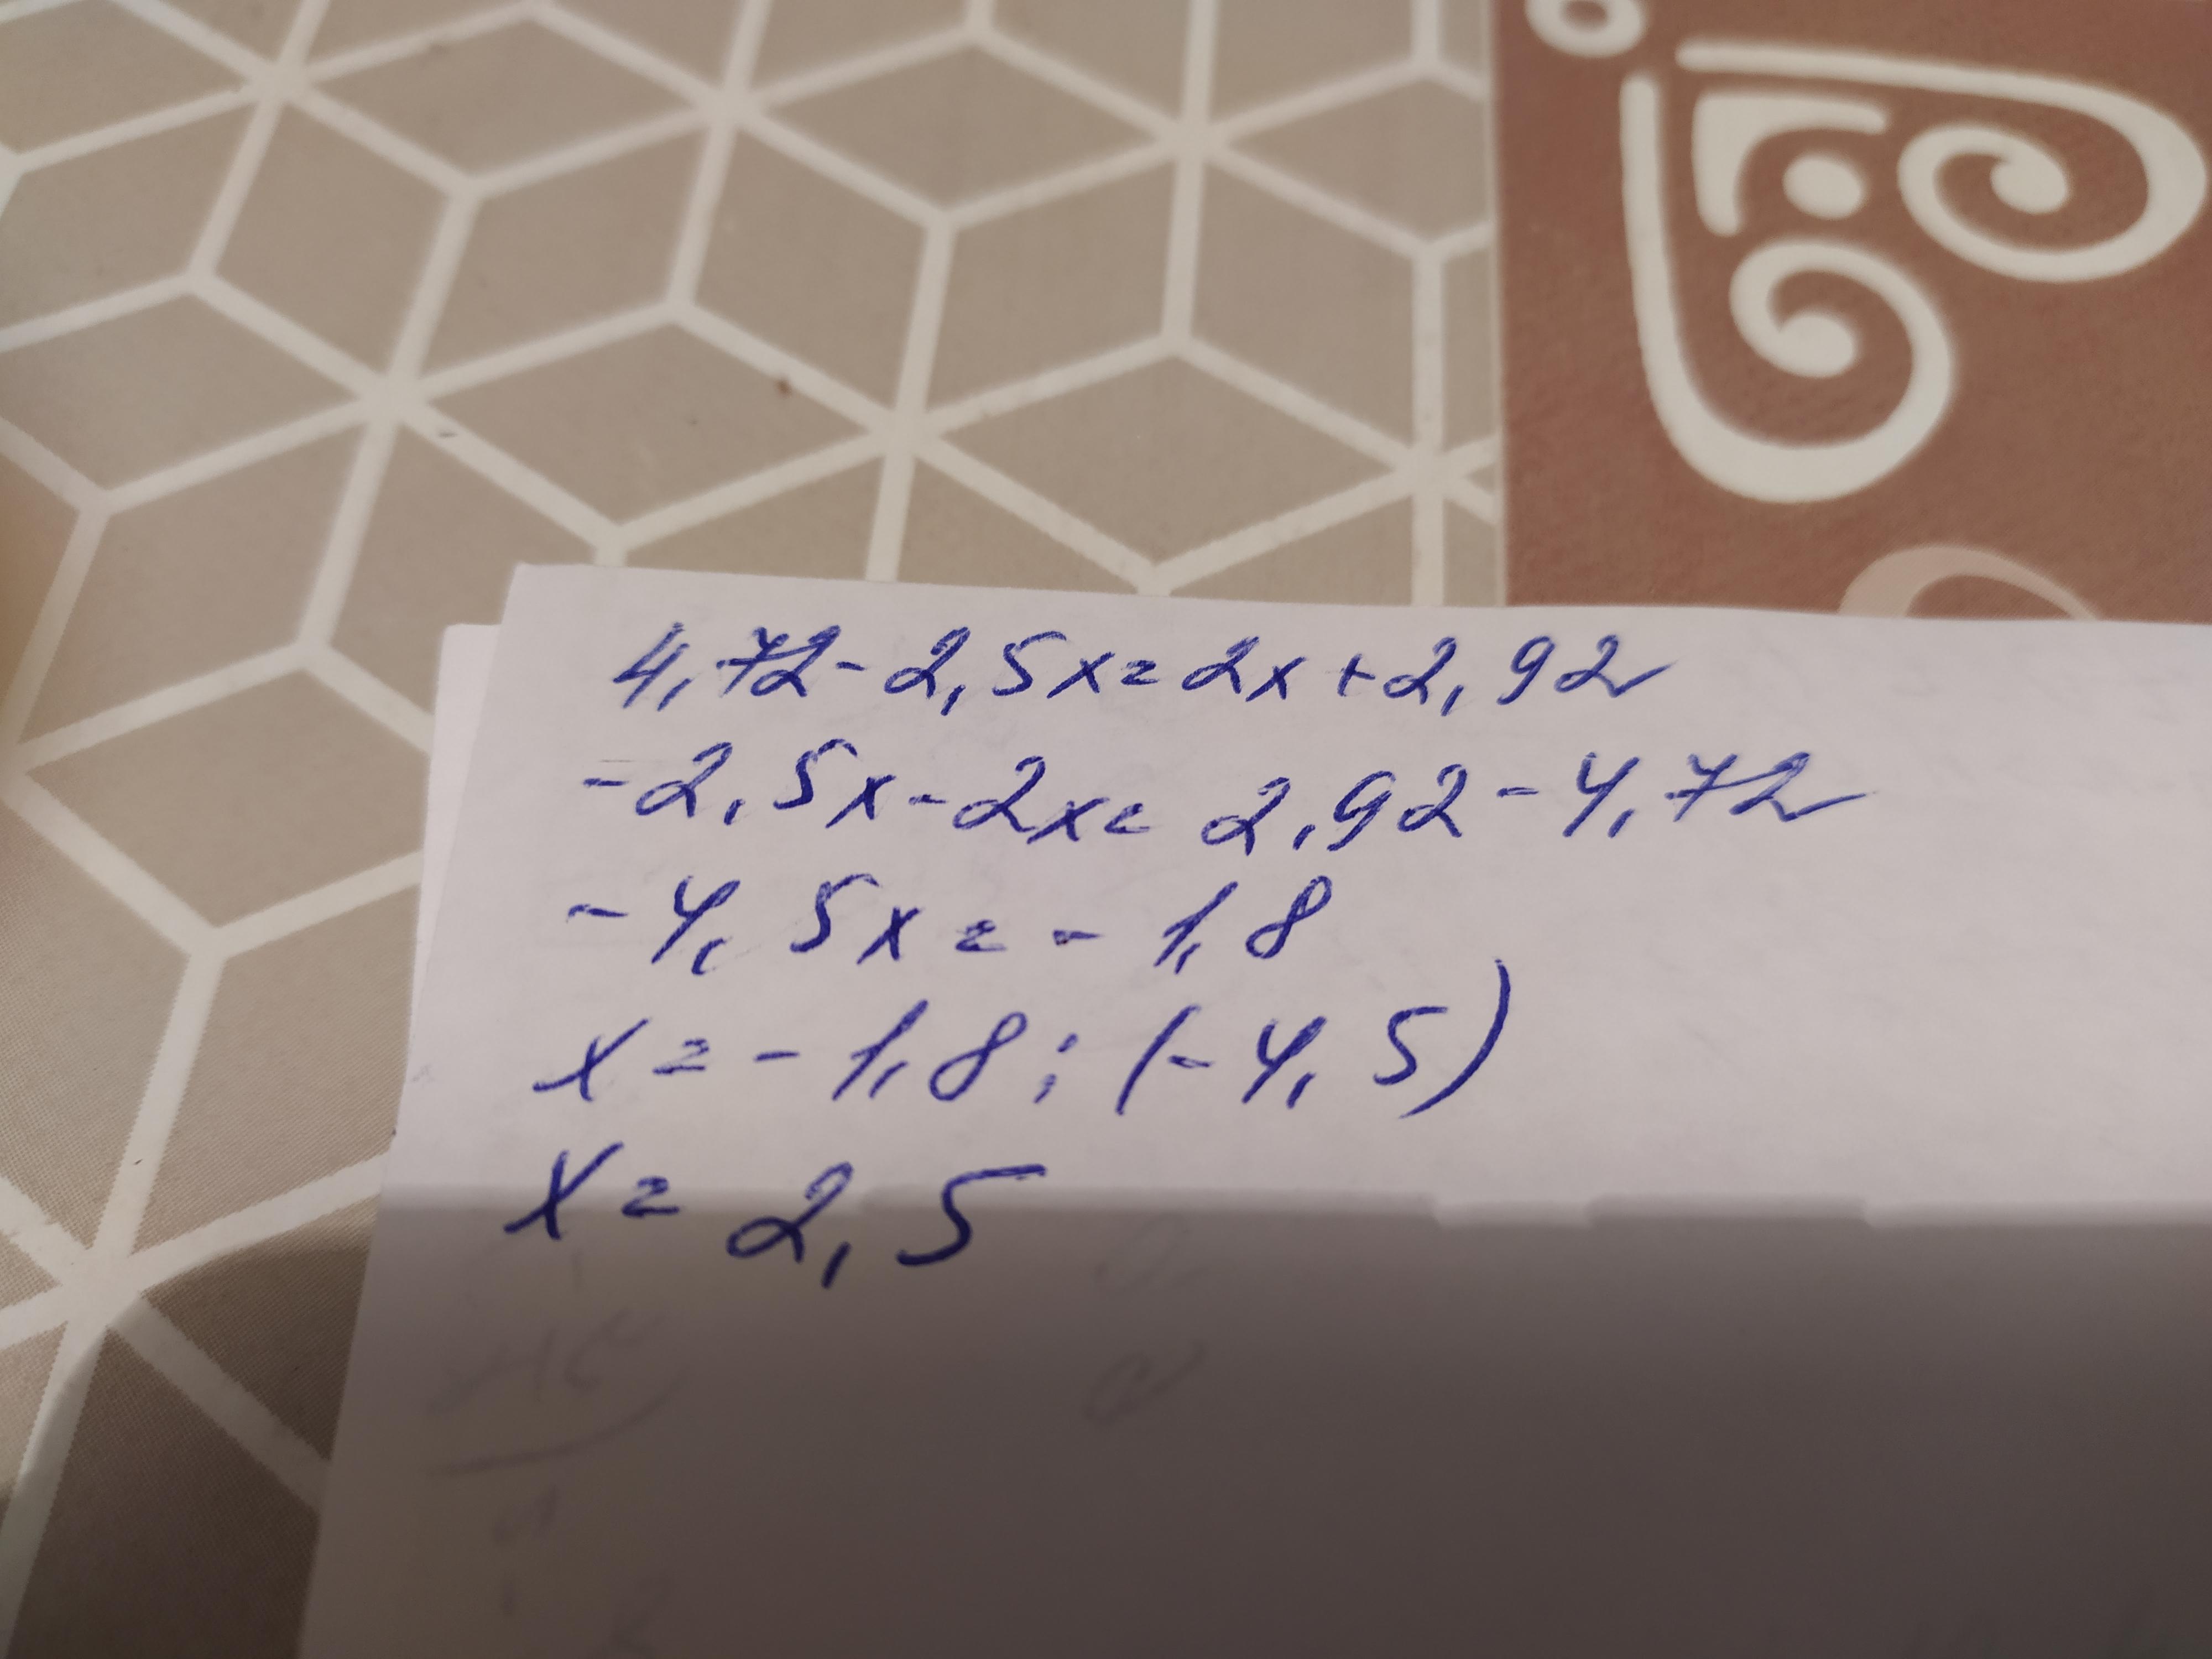 4,72-2,5x=2x+2,92
-2,5x-2x=2,92-4,72
-4,5x=-1,8
x=-1,8:(-4,5)
x=2,5